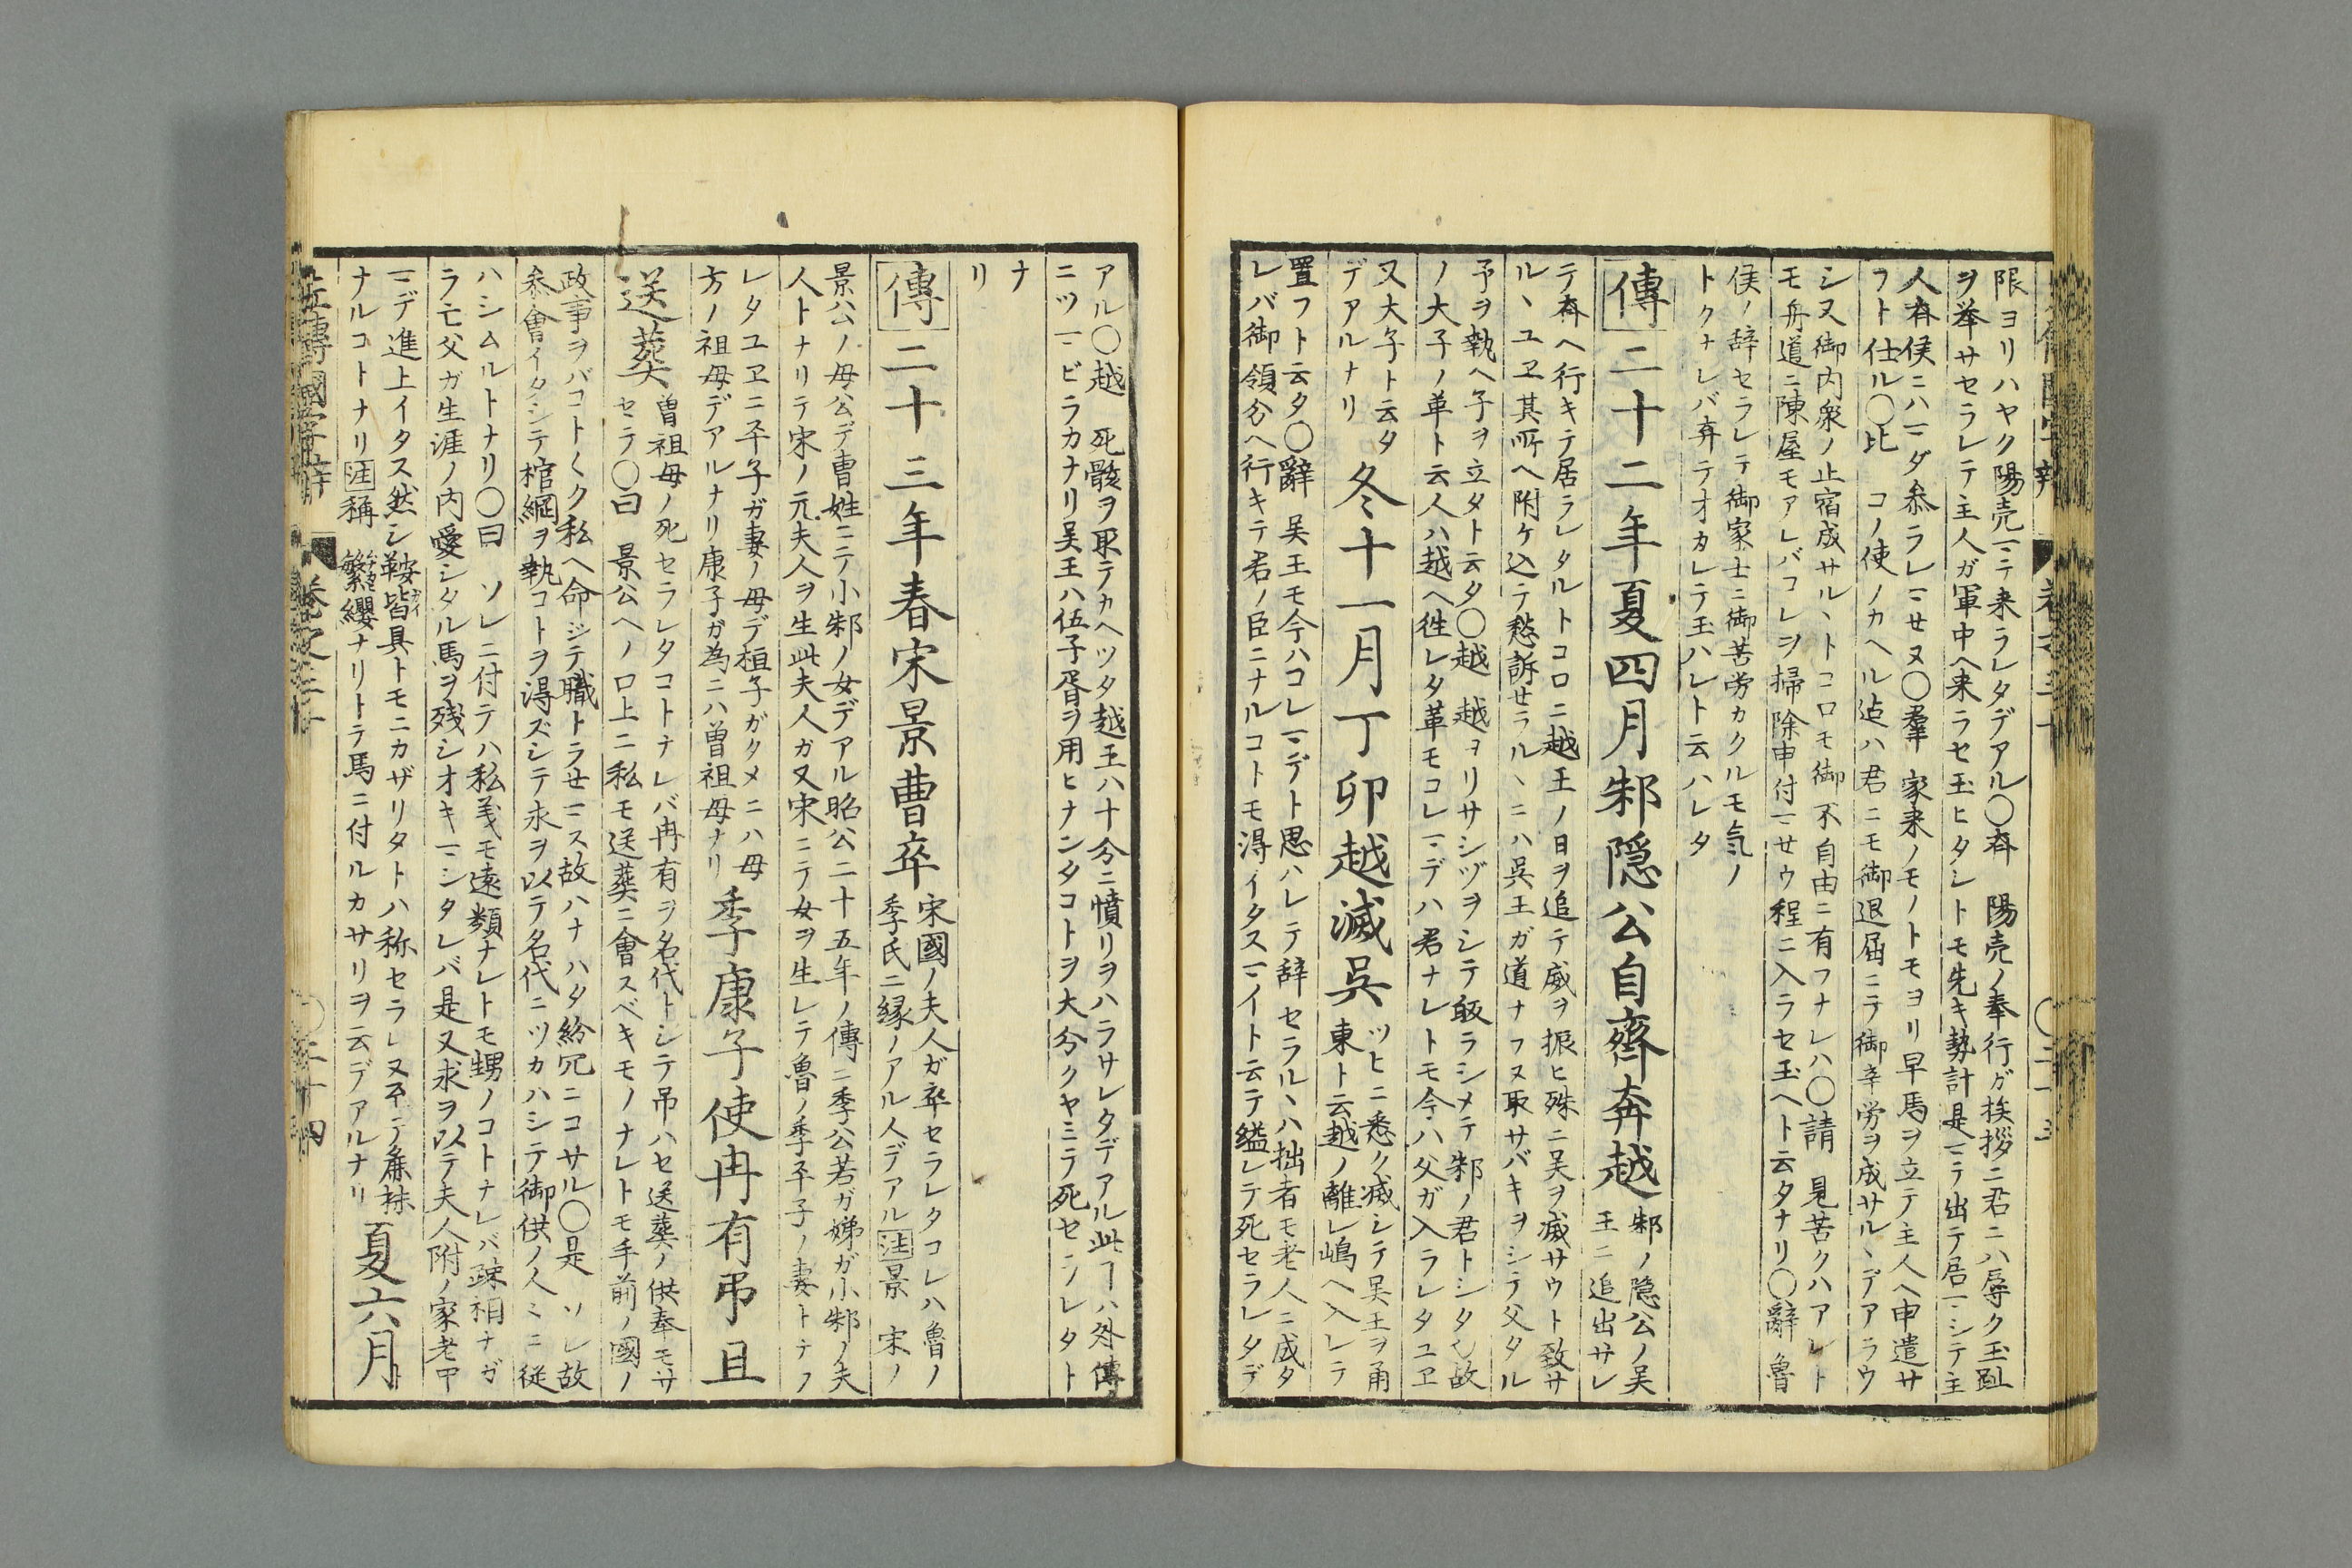 限ヨリハヤク陽売マテ来ラレタデアル〇斉　陽売ノ奉行ガ挨拶ニ君ニハ辱ク玉趾
ヲ挙サセラレテ主人ガ軍中ヘ来ラセ玉ヒタシトモ先キ勢計是マテ出テ居マシテ主
人斉侯ニハマダ参ラレマセヌ〇羣　家来ノモノトモヨリ早馬ヲ立テ主人ヘ申遣サ
フト仕ル〇比　コノ使ノカヘル迠ハ君ニモ御退屈ニテ御辛労ヲ成サルヽデアラウ
シ又御内衆ノ止宿成サルヽトコロモ御不自由ニ有フナレハ〇請　見苦クハアレト
モ舟道ニ陳屋モアレバコレヲ掃除申付マセウ程ニ入ラセ玉ヘト云タナリ〇辭　魯
侯ノ辞セラレテ御家士ニ御苦労カクルモ気ノ
トクナレバ弃テオカレテ玉ハレト云ハレタ
傳二十二年夏四月邾隠公自齊奔越
邾ノ隠公ノ呉
王ニ追出サレ
テ斉ヘ行キテ居ラレタルトコロニ越王ノ日ヲ追テ威ヲ振ヒ殊ニ呉ヲ滅サウト致サ
ルヽユヱ其所ヘ附ケ込テ愁訴せラルヽニハ呉王ガ道ナフヌ取サバキヲシテ父タル
予ヲ執ヘ子ヲ立タト云タ〇越　越ヨリサシヅヲシテ皈ラシメテ邾ノ君トシタ故
ノ大子ノ革ト云人ハ越ヘ徃レタ革モコレマデハ君ナレトモ今ハ父ガ入ラレタユヱ
又大子ト云タ
デアルナリ
冬十一月丁卯越滅呉
ツヒニ悉ク滅シテ呉王ヲ甬
東ト云越ノ離レ嶋ヘ入レテ
置フト云タ〇辭　呉王モ今ハコレマデト思ハレテ辞セラルヽハ拙者モ老人ニ成タ
レバ御領分ヘ行キテ君ノ臣ニナルコトモ得イタスマイト云テ縊レテ死セラレタデ
アル〇越　死骸ヲ取テカヘツタ越王ハ十分ニ憤リヲハラサレタデアル此ーハ外傳
ニツマビラカナリ呉王ハ伍子胥ヲ用ヒナンダコトヲ大分クヤミテ死セラレタト
ナ
リ
傳二十三年春宋景曹卒
宋國ノ夫人ガ卒セラレタコレハ魯ノ
季氏ニ縁ノアル人デアル注景　宋ノ
景公ノ母公デ曹姓ニテ小邾ノ女デアル昭公二十五年ノ傳ニ季公若ガ娣ガ小邾ノ夫
人トナリテ宋ノ元夫人ヲ生此夫人ガ又宋ニテ女ヲ生レテ魯ノ季平子ノ妻トナフ
レタユヱニ平子ガ妻ノ母デ桓子ガタメニハ母
方ノ祖母デアルナリ康子ガ為ニハ曽祖母ナリ
季康子使冉有弔且
送葬
曽祖母ノ死セラレタコトナレバ冉有ヲ名代トシテ吊ハセ送葬ノ供奉モサ
セラ〇曰　景公ヘノ口上ニ私モ送葬ニ會スベキモノナレトモ手前ノ國ノ
政事ヲバコトく私ヘ命ジテ職トラせマス故ハナハタ紛冗ニコサル〇是　ソレ故
参會イタシテ棺綱ヲ執コトヲ得ズシテ永ヲ以テ名代ニツカハシテ御供ノ人ミニ従
ハシムルトナリ〇曰　ソレニ付テハ私義モ遠類ナレトモ甥ノコトナレバ踈相ナガ
ラ亡父ガ生涯ノ内愛シタル馬ヲ残シオキマシタレバ是又求ヲ以テ夫人附ノ家老中
マデ進上イタス然シ鞍皆具トモニカザリタトハ称セラレヌ至テ麁抹
ナルコトナリ注稱　繁纓ナリトテ馬ニ付ルカサリヲ云デアルナリ
夏六月
左傳國字辯　巻之三十　〇二十四